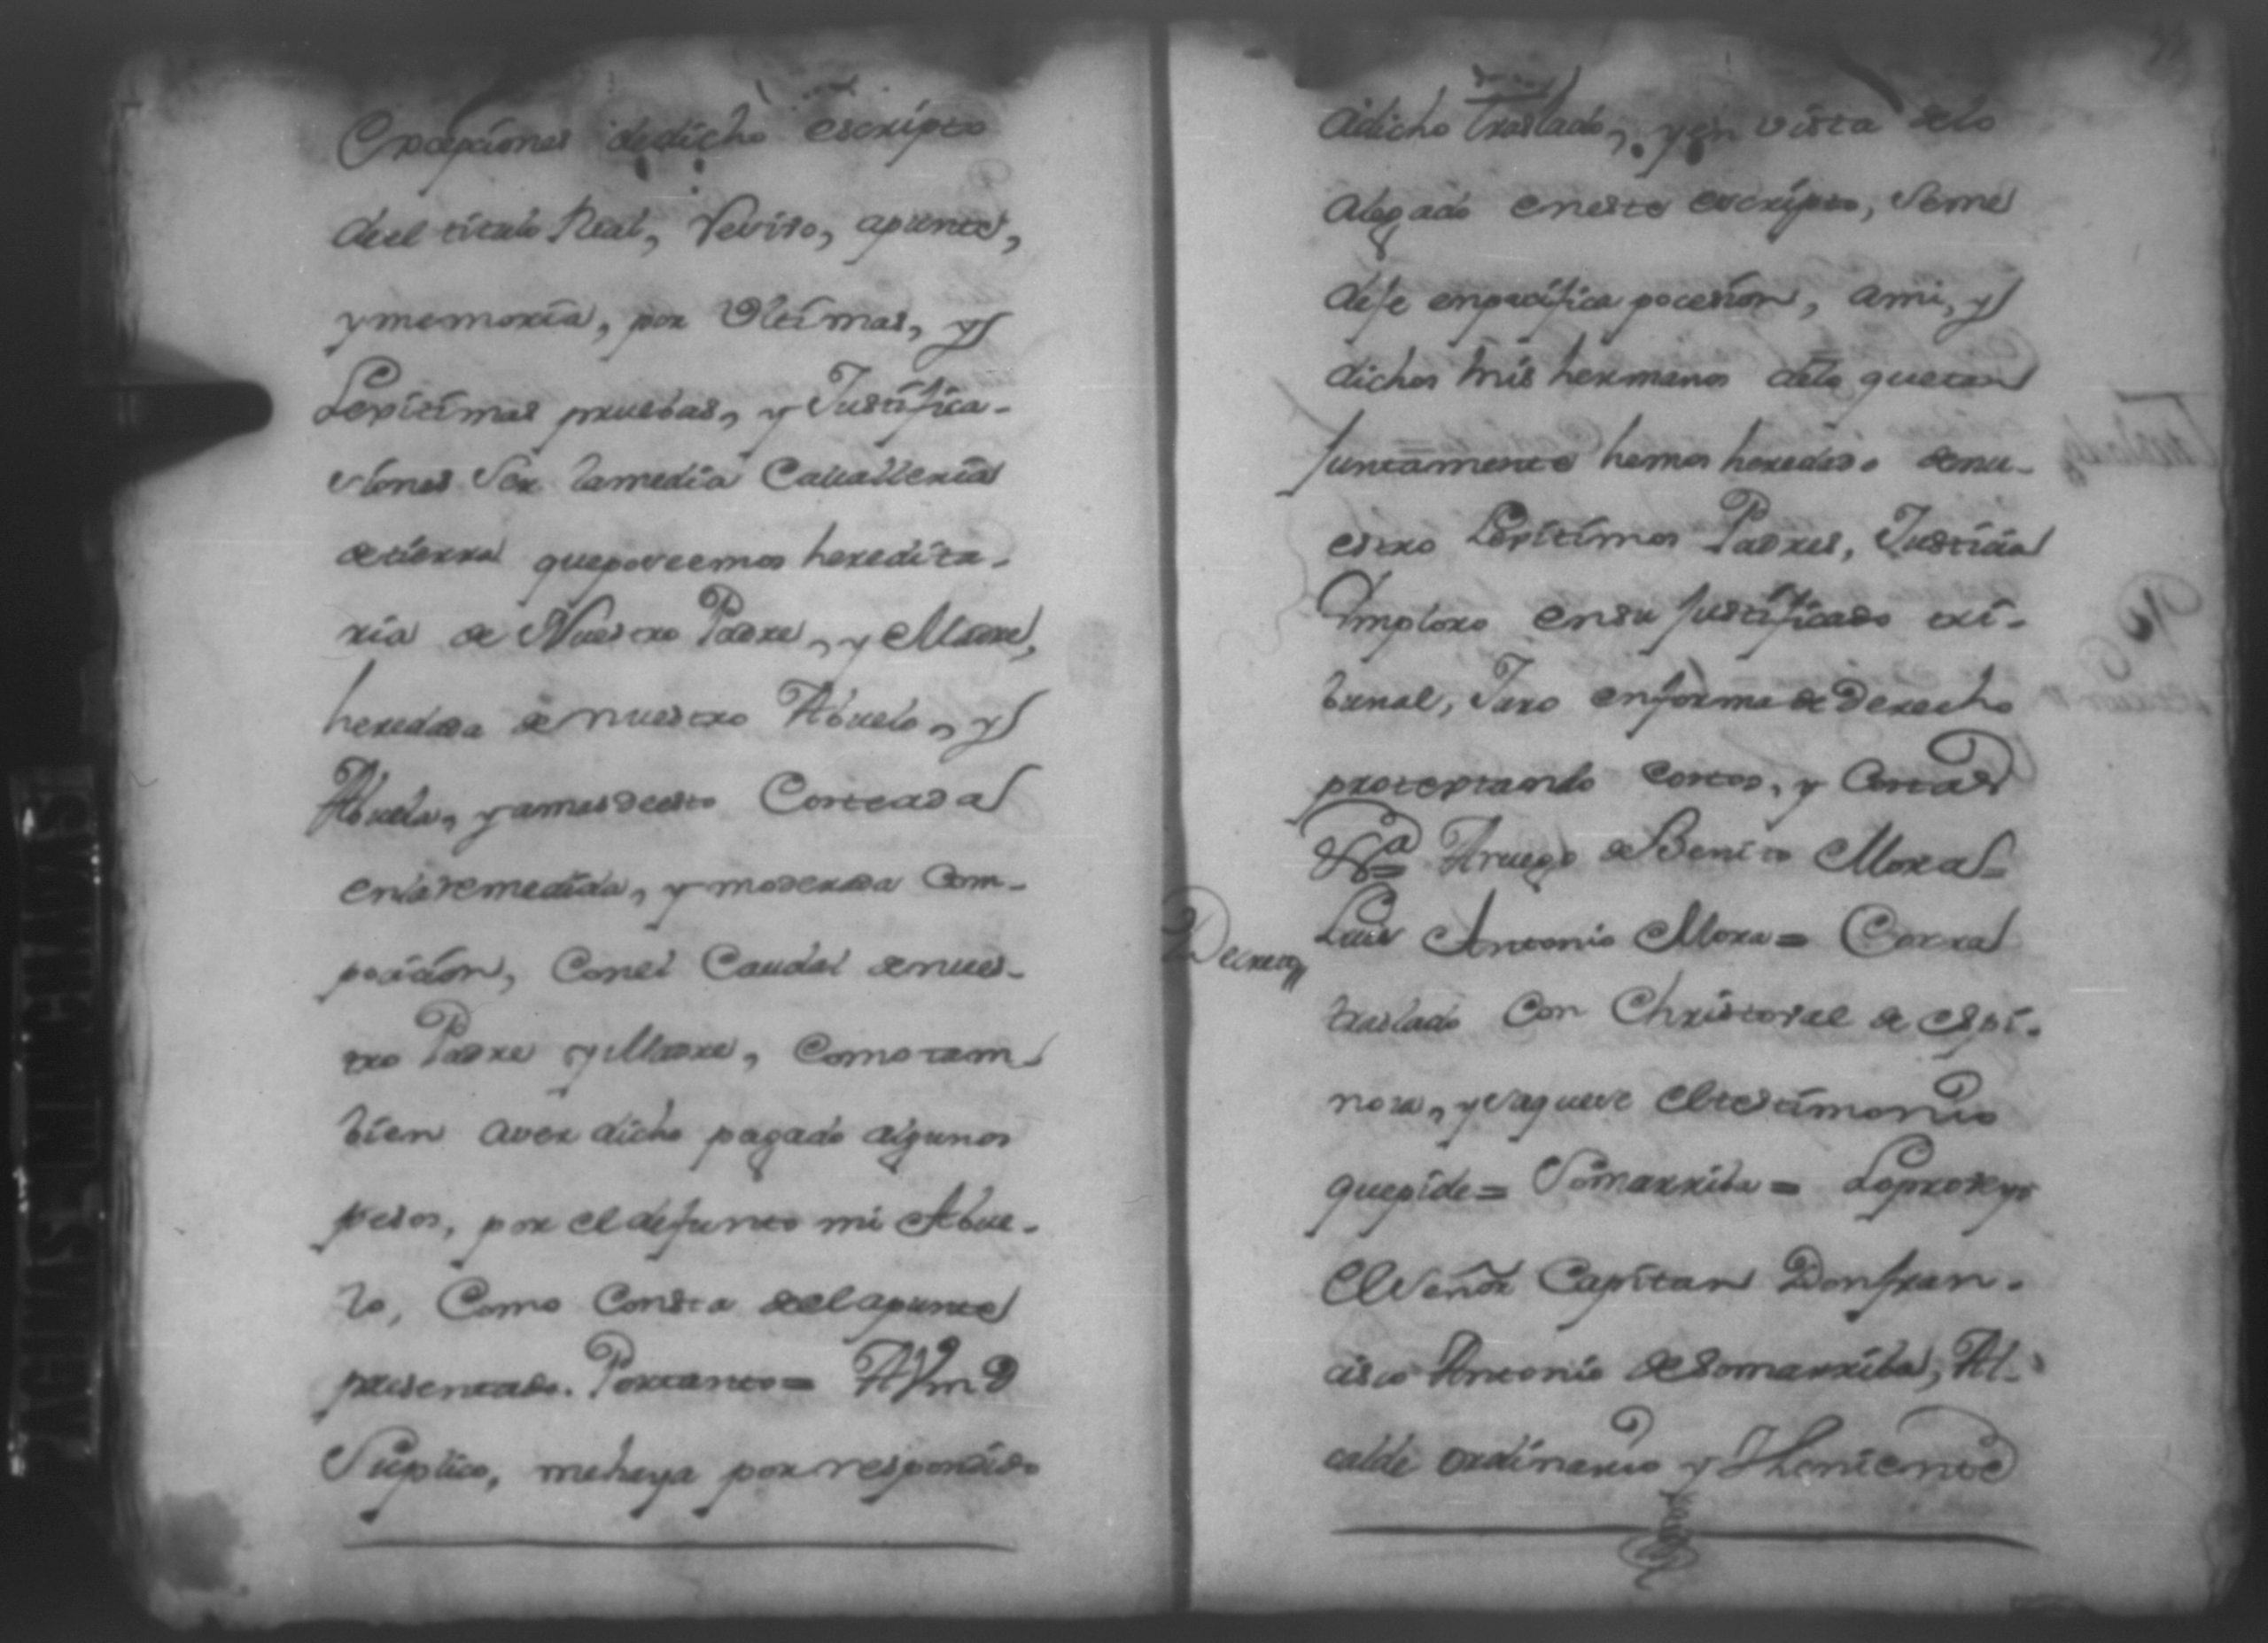 Excepciones dedicho escripto
deel titulo Real, Reviso, apunte,
y memoria, por Ultimas, y
Lexitimas pruebas, y Justifica-
ciones Ser lamedia Cauallería
detierra queposeemos heredita-
ria de Nuestro Padre, y Madre,
heredada de nuestro Abuelo, y
Abuela, y amasdeesto Costeada
enlaremedida, y moderada Com-
posición, Conel Caudal denues-
tro Padre y Madre, Como tam-
bien aver dicho pagado algunos
pesos, por el defunto mi Abue-
lo, Como Consta deel apunte
presentado. Portanto= A Vmd
Suplico, mehaya por respondido
adicho traslado, y en vista delo
alegado eneste escripto, Seme
dese enpacifica pocesion, ami, y
dichos mis hermanos delo que tan
Juntamente hemos heredado denu-
estro Lexitimos Padres, Justicia
Imploro ensu Justificado tri-
bunal, Juro enforma de Derecho
protextando Costos, y Costas
Aruego de Benito Mora=
Luis Antonio Mora= Corra
Decreto
traslado Con Christoval de Espi-
nosa, y saquese eltestimonio
quepide= Somarriba= Loproveyó
El Señor Capitan Donfran-
cisco Antonio deSomarriba, Al-
calde ordinario y Theniente